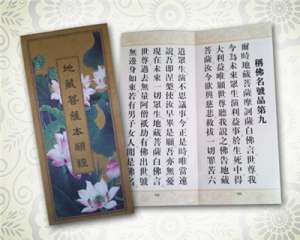 地藏菩薩本願經
稱佛名號品第九
爾時地藏菩薩摩訶薩白佛言世尊我
今為未來眾生演利益事於生死中得
大利益唯願世尊聽我說之佛告地藏
菩薩汝今欲興慈悲救拔一切罪苦六
道眾生演不思議事今正是時唯當速
說吾即涅槃使汝早畢是願吾亦無憂
現在未來一切眾生地藏菩薩白佛言
世尊過去無量阿僧祇劫有佛出世號
無邊身如來若有男子女人聞是佛名